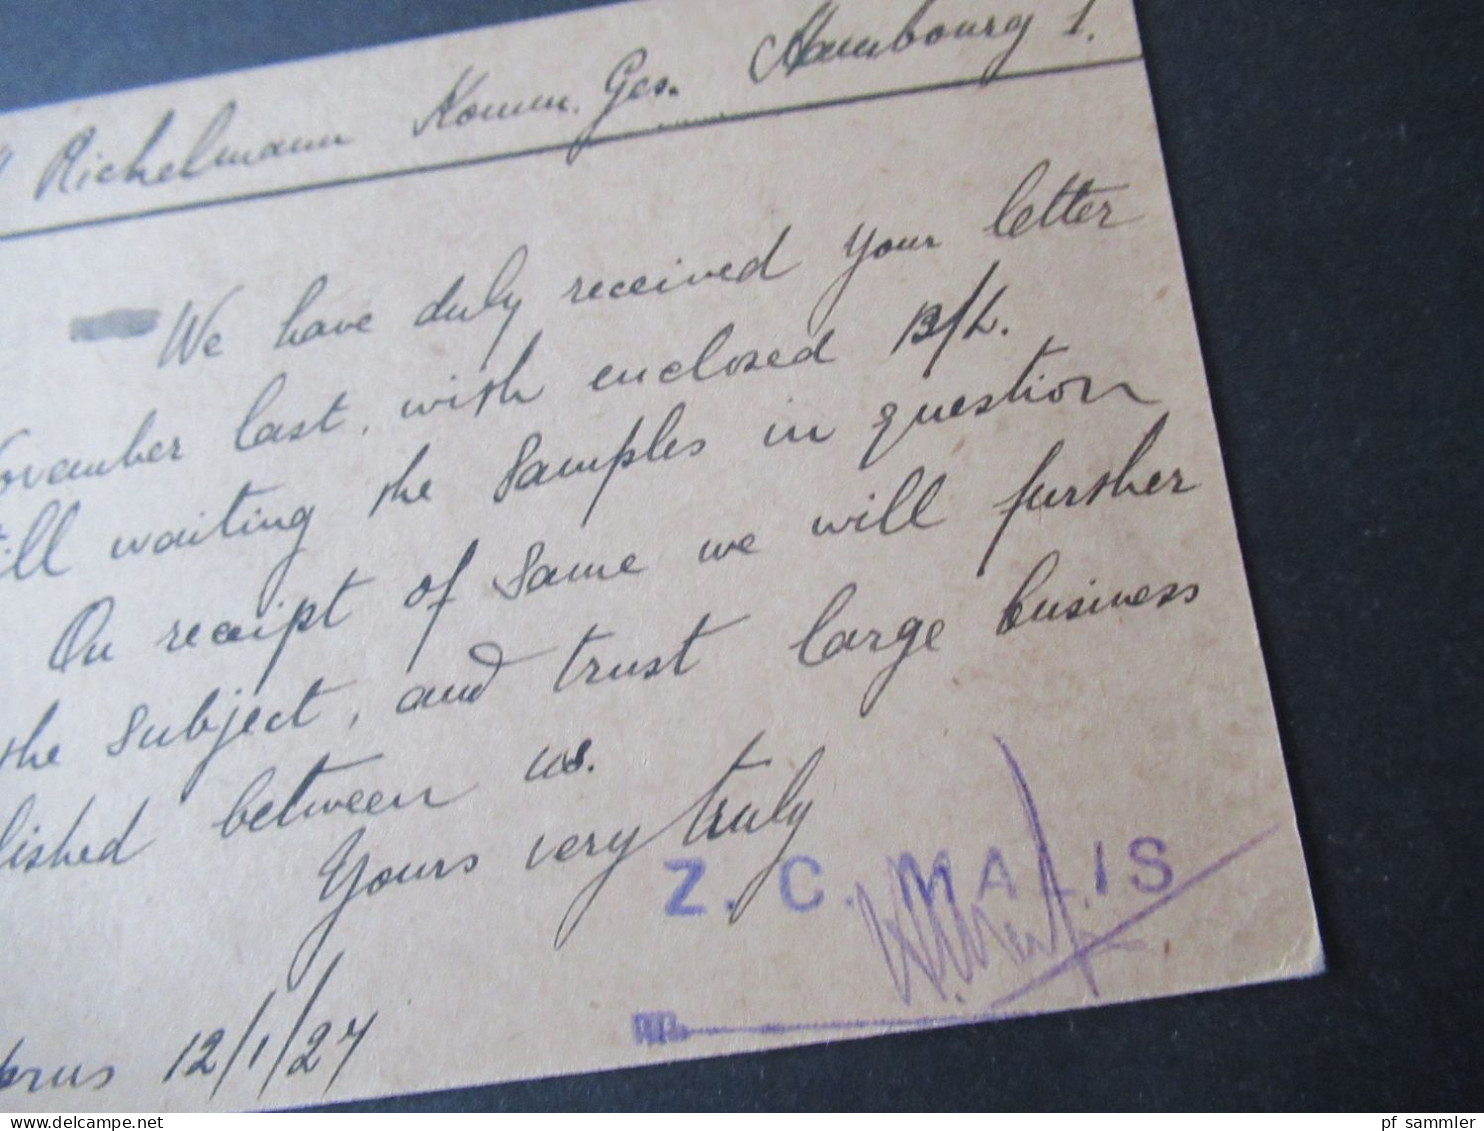 Richelmann Komm. Ges. Hambourg 1.
We have duly received your letter
ovember last, with enclosed B/L.
ill waiting the samples in question
On receipt of same we will further
the subject, and trust large business
lished between us.
Yours very truly
Z. C. MALIS
prus 12/1/27
pf sammler